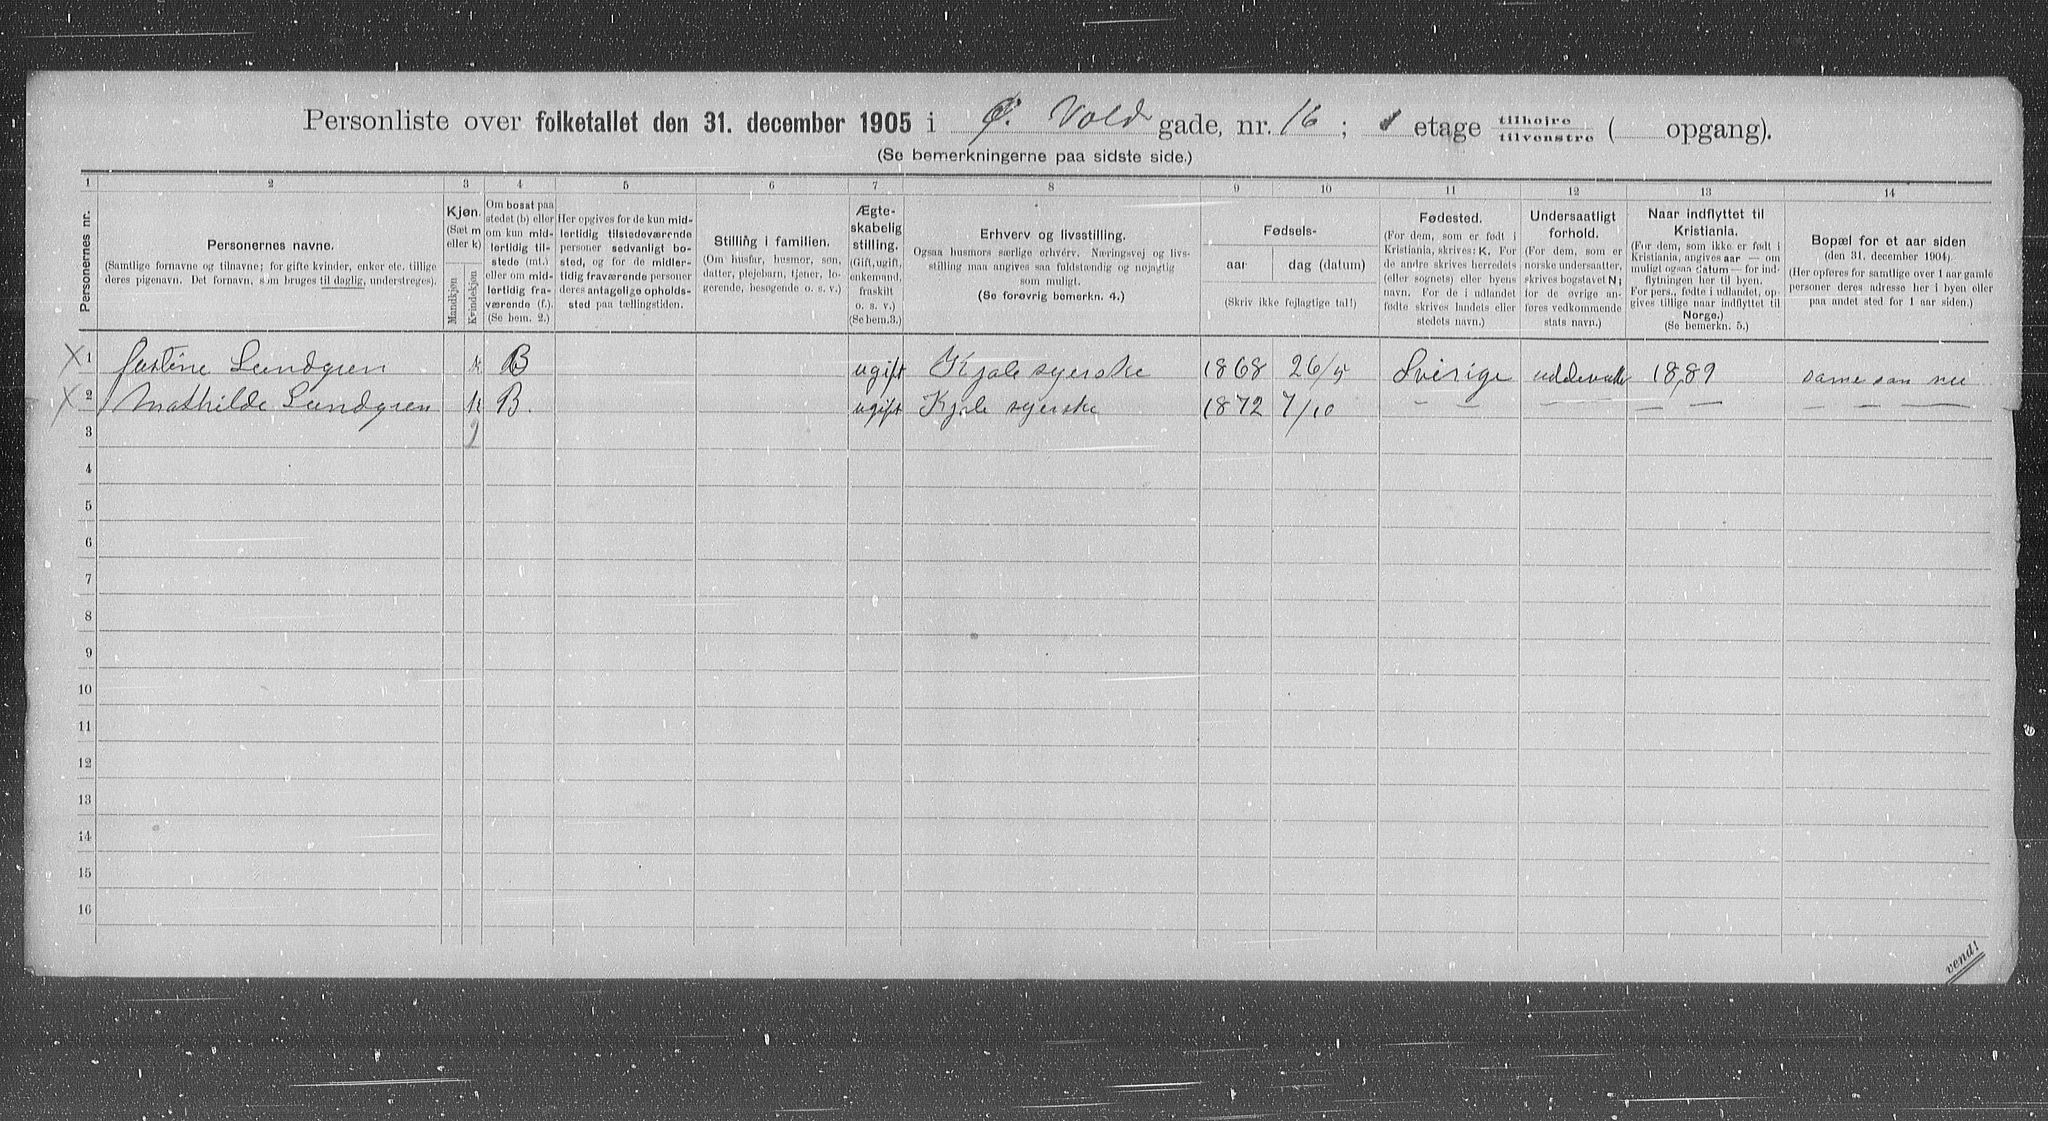 Personliste over folketallet den 31. december 1905 i Ø. Vold gade, nr. 16 ; 1 etage tilhøjre tilvenstre ( opgang).
(Se bemerkningerne paa sidste side.)
1 2 3 4 5 6 7 8 9 10 11 12 13 14
Personernes nr.
Personernes navne.
(Samtlige fornavne og tilnavne; for gifte kvinder, enker etc. tillige
deres pigenavn. Det fornavn, som bruges til daglig, understreges).
Kjøn.
(Sæt m
eller k)
Mandkjøn
Kvindekjøn
Om bosat paa
stedet (b) eller
om kun mid-
lertidig til-
stede (mt.)
eller om mid-
lertidig fra-
værende (f.).
(Se bem. 2.)
Her opgives for de kun mid-
lertidig tilstedeværende
personer sedvanligt bo-
sted, og for de midler-
tidig fraværende personer
deres antagelige opholds-
sted paa tællingstiden.
Stilling i familien.
(Om husfar, husmor, søn,
datter, plejebarn, tjener, lo-
gerende, besøgende o. s. v.)
Ægte-
skabelig
stilling.
(Gift, ugift,
enkemand,
fraskilt
o. s. v.)
(Se bem.3.)
Erhverv og livsstilling.
Ogsaa husmors særlige erhverv. Næringsvej og livs-
stilling maa angives saa fuldstændig og nøjagtig
som muligt.
(Se forøvrig bemerkn. 4.)
Fødsels-
aar dag (datum)
(Skriv ikke fejlagtige tal!)
Fødested.
(For dem, som er født i
Kristiania, skrives: K. For
de andre skrives herredets
(eller sognets) eller byens
navn. For de i udlandet
fødte skrives landets eller
stedets navn.)
Undersaatligt
forhold.
(For dem, som er
norske undersaatter,
skrives bogstavet N;
for de øvrige an-
føres vedkommende
stats navn.)
Naar indflyttet til
Kristiania.
(For dem, som ikke er født i
Kristiania, angives aar — om
muligt ogsaa datum — for ind-
flytningen her til byen.
For pers., fødte i udlandet, op-
gives tillige naar indflyttet til
Norge.)
(Se bemerkn. 5.)
Bopæl for et aar siden
(den 31. december 1904).
(Her opføres for samtlige over 1 aar gamle
personer deres adresse her i byen eller
paa andet sted for 1 aar siden.)
X 1 Justine Lundgren k B ugift Kjole syerske 1868 26/5 Sverige uddevalle 1889 same som nu
X 2 Mathilde Lundgren k B. ugift Kjole syerske 1872 7/10 — — — — — — — — —
3 2
4
5
6
7
8
9
10
11
12
13
14
15
16
vend!